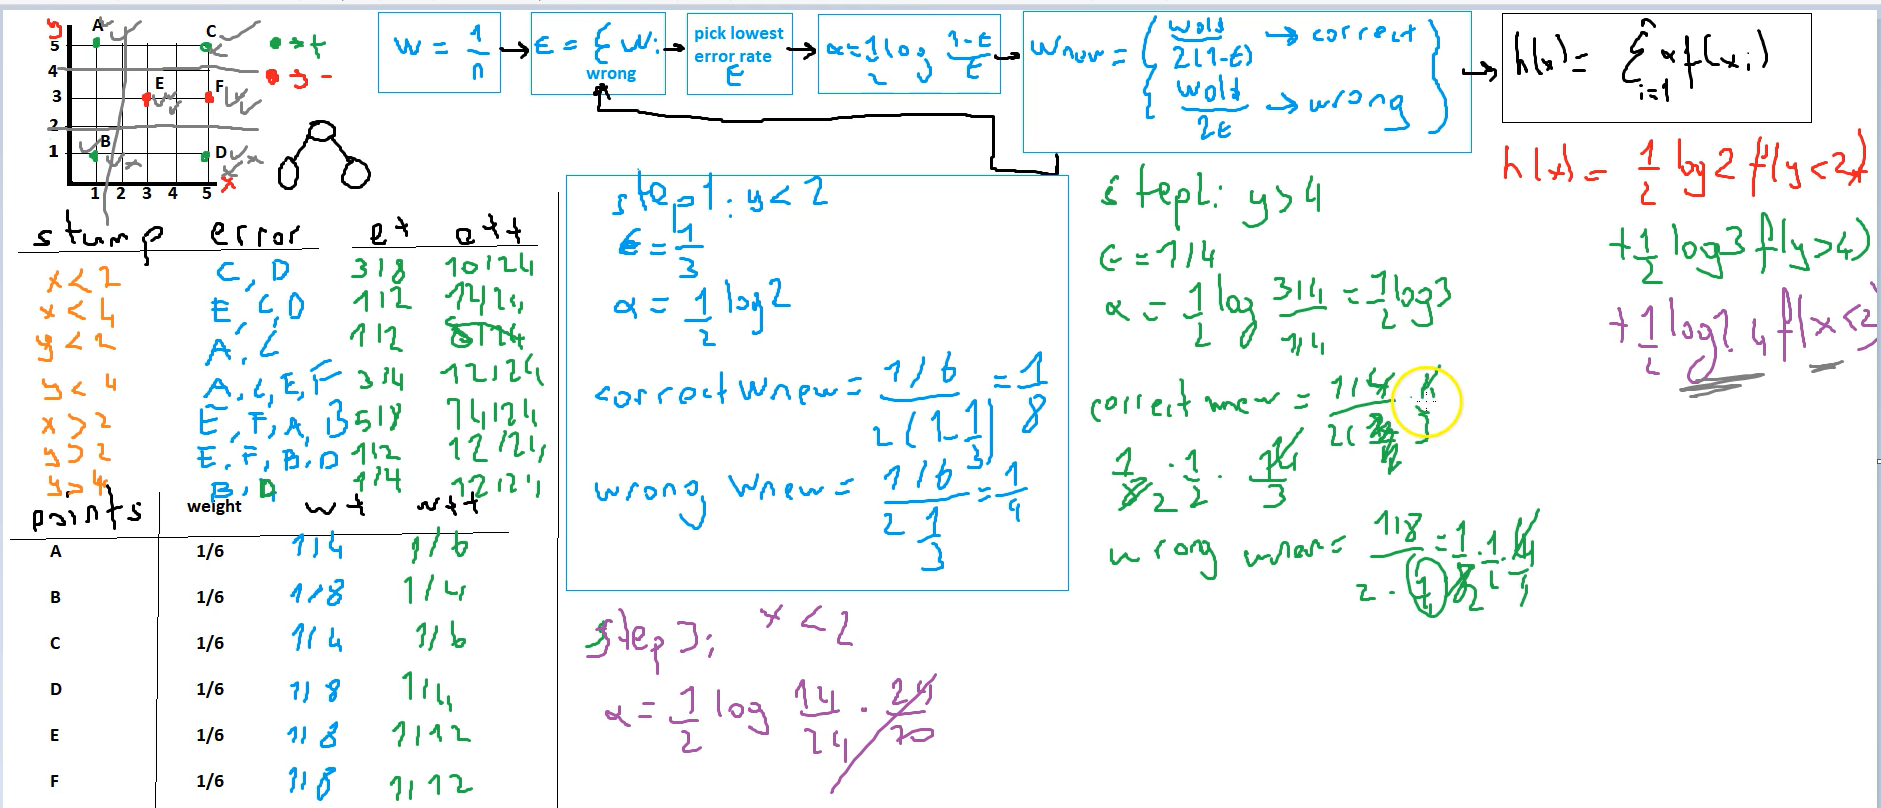 y
5
4
3
2
1
1 2 3 4 5 x
A
C
E
F
B
D
→ +
→ -
w = 1/n
→
ε = Σ wi
wrong
→
pick lowest
error rate
ε
→
α = 1/2 log (1-ε)/ε
→
wnew = { wold/2(1-ε) → correct
wold/2ε → wrong }
→
h(x) = Σ i=1 n α f(xi)
stump error et ett
x < 2 C, D 3/8 10/24
x < 4 E, C, D 1/2 12/24
y < 2 A, C 1/2
y < 4 A, C, E, F 3/4 12/24
x > 2 E, F, A, B 5/8 14/24
y > 2 E, F, B, D 1/2 12/24
y > 4 B, D 1/4 12/24
points weight wt wtt
A 1/6 1/4 1/6
B 1/6 1/8 1/4
C 1/6 1/4 1/6
D 1/6 1/8 1/4
E 1/6 1/8 1/12
F 1/6 1/8 1/12
step1: y < 2
ε = 1/3
α = 1/2 log2
correct wnew = 1/6 / 2(1-1/3) = 1/8
wrong wnew = 1/6 / 2 1/3 = 1/4
step2: y > 4
ε = 1/4
α = 1/2 log 3/4 / 1/4 = 1/2 log3
correct wnew =
wrong wnew =
step3: x < 2
α = 1/2 log 14/24 · 24/10
h(x) = 1/2 log2 f(y<2)
+ 1/2 log3 f(y>4)
+ 1/2 log1.4 f(x<2)